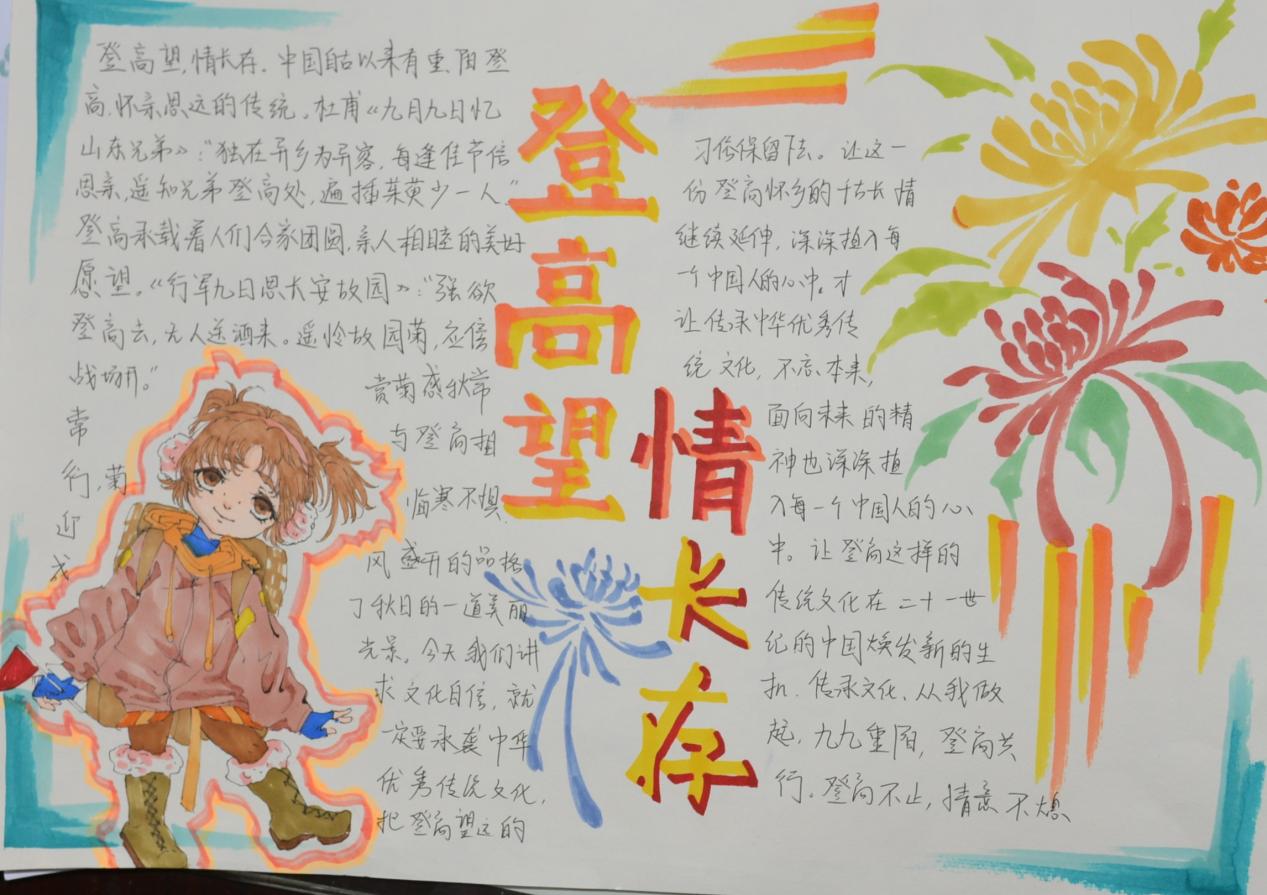 登高望,情长存.中国自古以来有重阳登
高,怀亲思远的传统。杜甫《九月九日忆
山东兄弟》:"独在异乡为异客,每逢佳节倍
思亲,遥知兄弟登高处,遍插茱萸少一人。"
登高承载着人们合家团圆,亲人相睦的美好
愿望。《行军九日思长安故园》:"强欲
登高去,无人送酒来。遥怜故园菊,应傍
战场开。"
赏菊感秋常
常
与登高相
行,菊
临寒不惧.
迎
风盛开的品格
成
了秋日的一道美丽
光景。今天我们讲
求文化自信,就
一定要承袭中华
优秀传统文化,
把登高望远的
登高望
情长存
习俗保留下去。让这一
份登高怀乡的古长情
继续延伸,深深植入每
一个中国人的心中。才
让传承中华优秀传
统文化,不忘本来,
面向未来的精
神也深深植
入每一个中国人的心
中。让登高这样的
传统文化在二十一世
纪的中国焕发新的生
机.传承文化、从我做
起,九九重阳,登高共
行。登高不止,情意不熄